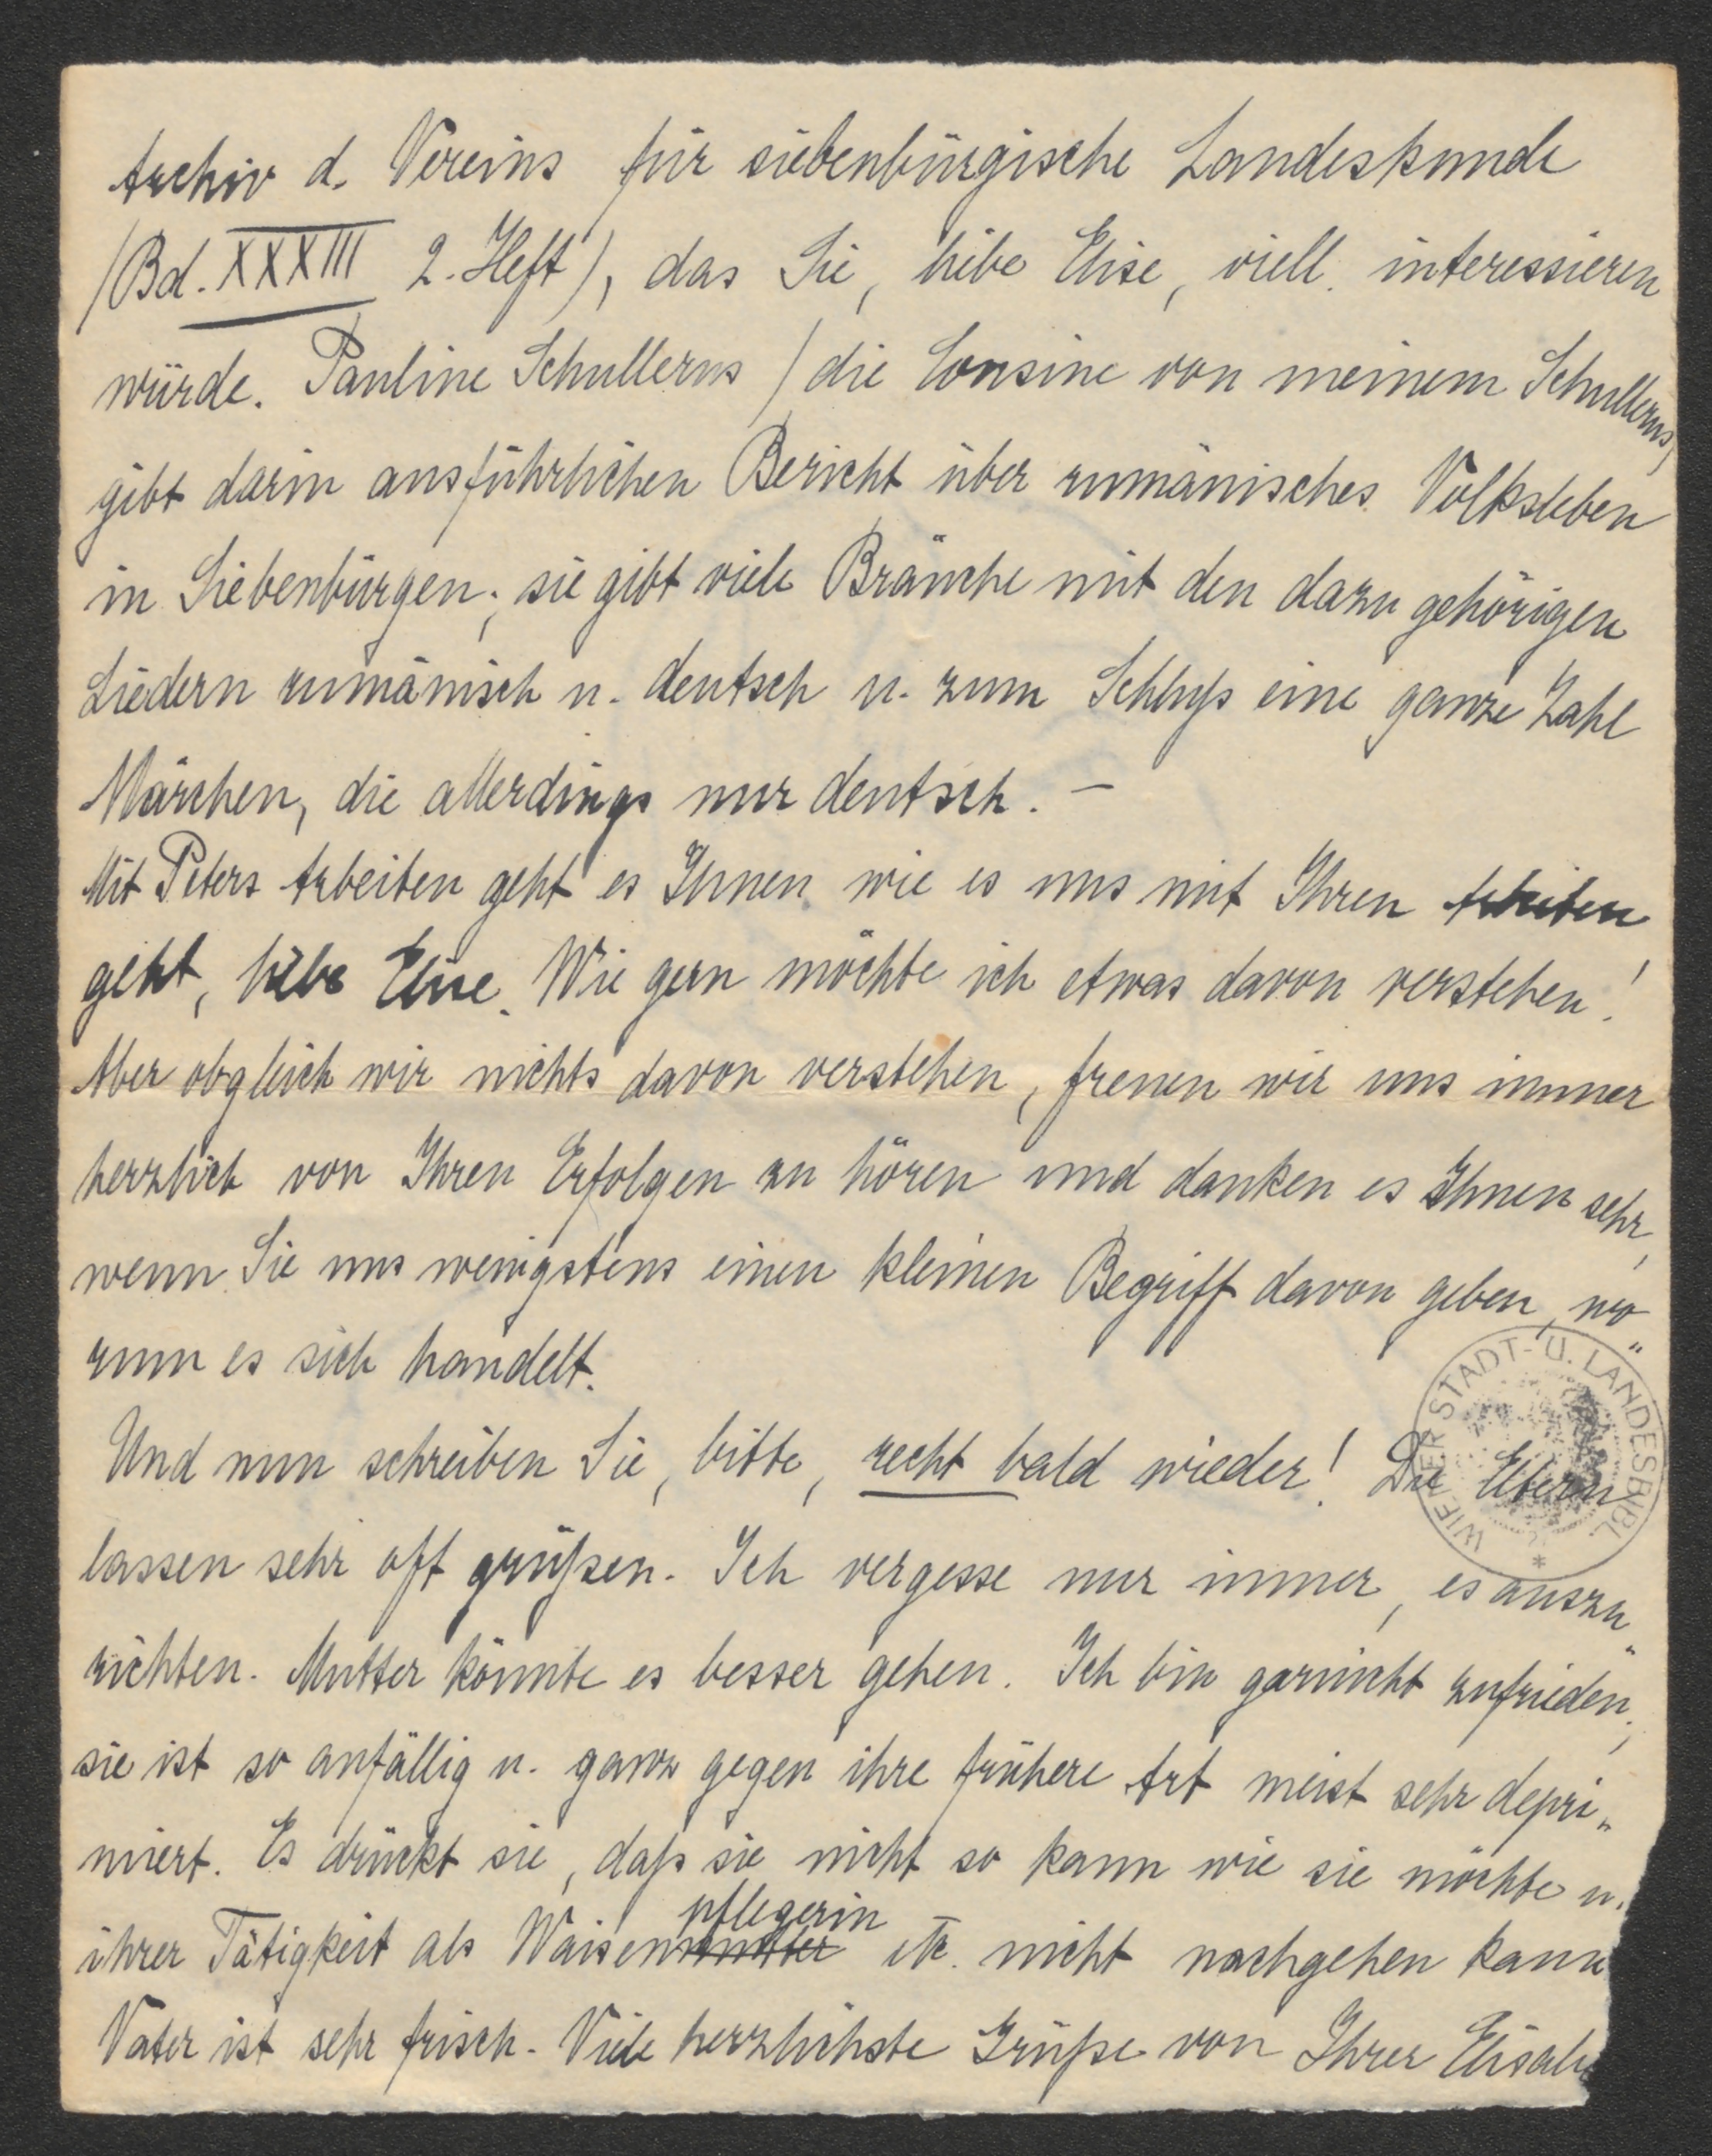 Archiv d. Vereins für siebenbürgische Landeskunde
(Bd. XXXIII 2. Heft), das Sie, liebe Elise, viell. interessieren
würde. Pauline Schullerus (die Cousine von meinem Schullerus)
gibt darin ausführlichen Bericht über rumänisches Volksleben
in Siebenbürgen; sie gibt viele Bräuche mit den dazu gehörigen
Liedern rumänisch u. deutsch u. zum Schluß eine ganze Zahl
Märchen, die allerdings nur deutsch. –
Mit Peters Arbeiten geht es Ihnen wie es uns mit Ihren Arbeiten
geht, liebe Elise. Wie gern möchte ich etwas davon verstehen!
Aber obgleich wir nichts davon verstehen, freuen wir uns immer
herzlich von Ihren Erfolgen zu hören und danken es Ihnen sehr,
wenn Sie uns wenigstens einen kleinen Begriff davon geben, wo„
rum es sich handelt.
Und nun schreiben Sie, bitte, recht bald wieder! Die Eltern
lassen sehr oft grüßen. Ich vergesse nur immer, es auszu„
richten. Mutter könnte es besser gehen. Ich bin garnicht zufrieden;
sie ist so anfällig u. ganz gegen ihre frühere Art meist sehr depri„
miert. Es drückt sie, daß sie nicht so kann wie sie möchte u.
pflegerin
ihrer Tätigkeit als Waisenmutter etc. nicht nachgehen kann
Vater ist sehr frisch. Viele herzlichste Grüße von Ihrer Elisab
WIENER STADT- U. LANDESBIBL. *